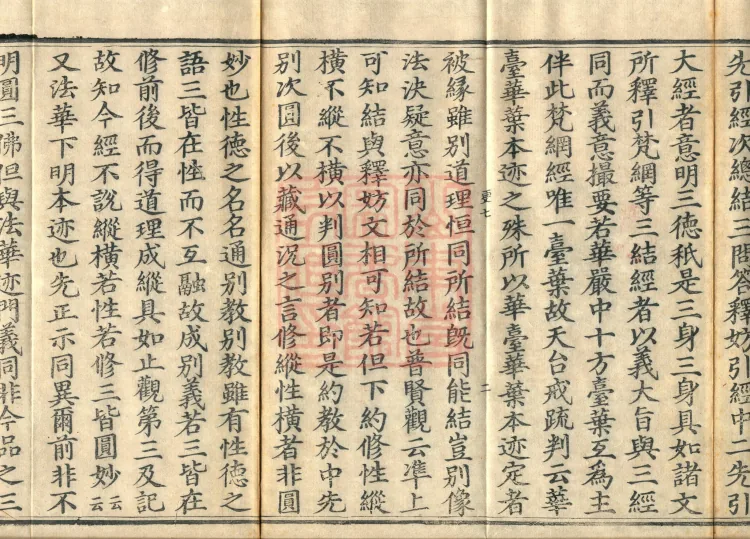 先引經次總結三問答釋妨引經中二先引
大經者意明三德秖是三身三身具如諸文
所釋引梵網等三結經者以義大旨與三經
同而義意撮要若華嚴中十方臺葉互為主
伴此梵網經唯一臺葉故天台戒疏判云華
臺華葉本迹之殊所以華臺華葉本迹定者
更七
二
被緣雖別道理恒同所結旣同能結豈別像
法決疑意亦同於所結故也普賢觀云準上
可知結與釋妨文相可知若但下約修性縱
橫不縱不橫以判圓別者即是約教於中先
別次圓後以藏通況之言修縱性橫者非圓
妙也性德之名名通別教別教雖有性德之
語三皆在性而不互融故成別義若三皆在
修前後而得道理成縱具如止觀第三及記
故知今經不說縱橫若性若修三皆圓妙云云
又法華下明本迹也先正示同異爾前非不
明圓三佛但與法華迹門義同非今品之三